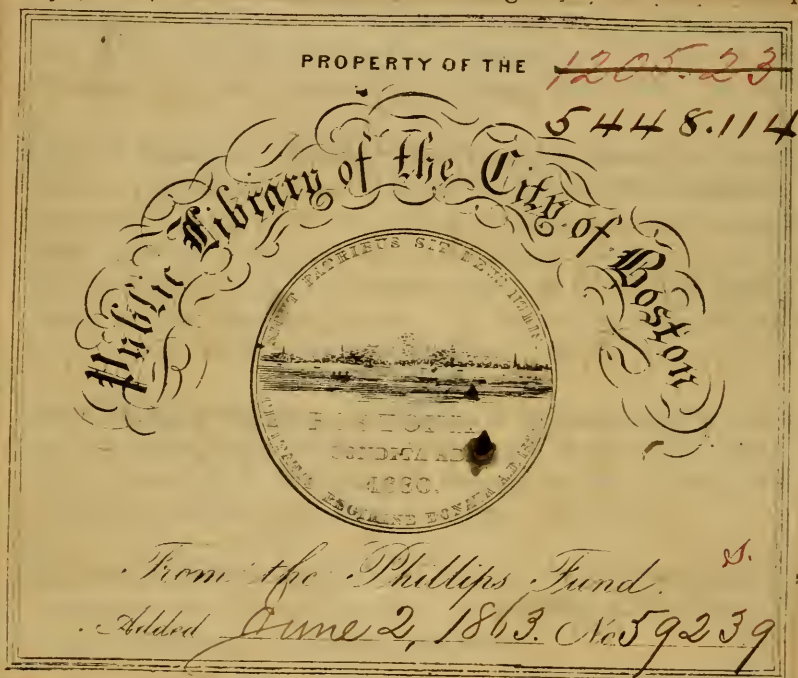 PROPERTY OF THE 1205.23
5448.114
Public Library of the City of Boston
SIT DEUS NOBIS
BOSTONIA
CONDITA AD.
1630.
DONATA A.D.
From the Phillips Fund. S.
Added June 2, 1863. No 59239